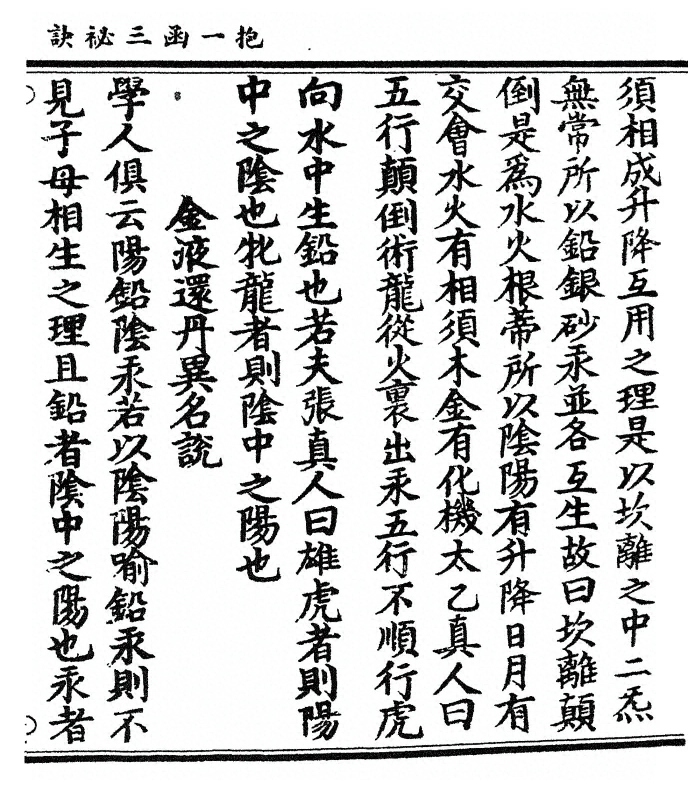 抱一函三祕訣
須相成升降互用之理是以坎離之中二炁
無常所以鉛銀砂汞並各互生故曰坎離顛
倒是爲水火根蒂所以陰陽有升降日月有
交會水火有相須木金有化機太乙真人曰
五行顛倒術龍從火裏出汞五行不順行虎
向水中生鉛也若夫張真人曰雄虎者則陽
中之陰也牝龍者則陰中之陽也
金液還丹異名說
學人俱云陽鉛陰汞若以陰陽喻鉛汞則不
見子母相生之理且鉛者陰中之陽也汞者